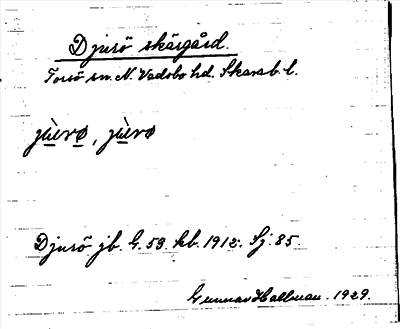 Djurö skärgård.
Torsö sn. N. Vadsbo hd. Skarab. l.
Djurö jb. G. 53. kb. 1912. Sj. 85.
Gunnar Hallman. 1929.